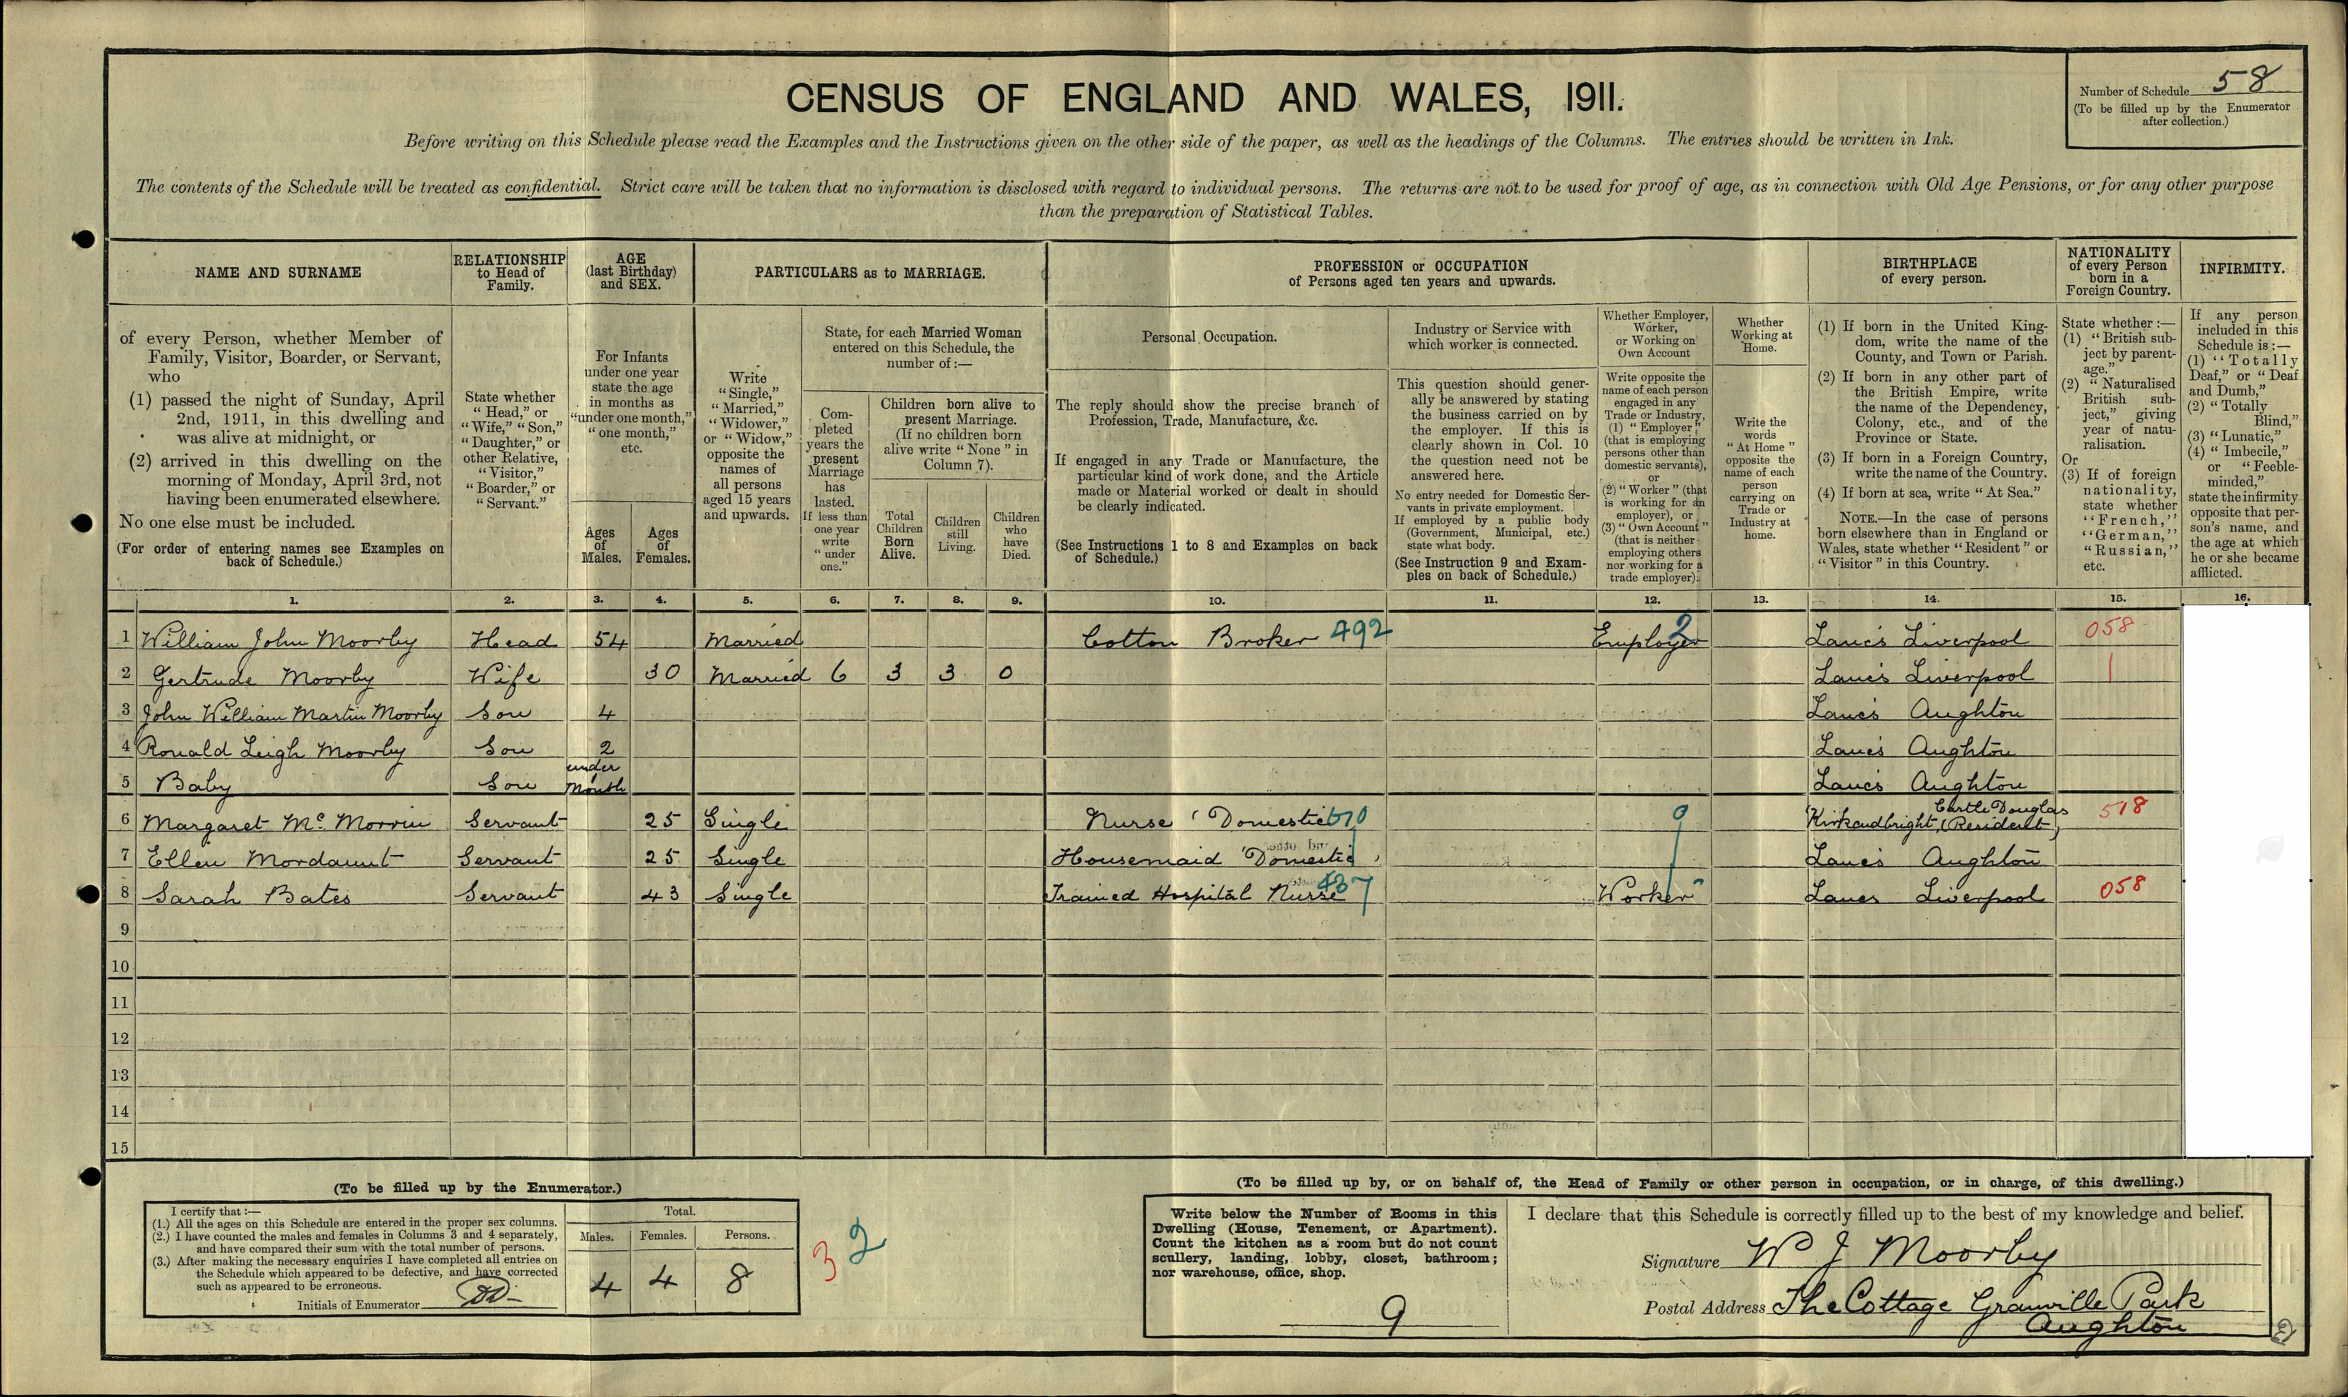 CENSUS OF ENGLAND AND WALES, 1911.
Number of Schedule 58
(To be filled up by the Enumerator
after collection.)
Before writing on this Schedule please read the Examples and the Instructions given on the other side of the paper, as well as the headings of the Columns. The entries should be written in Ink.
The contents of the Schedule will be treated as confidential. Strict care will be taken that no information is disclosed with regard to individual persons. The returns are not to be used for proof of age, as in connection with Old Age Pensions, or for any other purpose
than the preparation of Statistical Tables.
NAME AND SURNAME
of every Person, whether Member of
Family, Visitor, Boarder, or Servant,
who
(1) passed the night of Sunday, April
2nd, 1911, in this dwelling and
was alive at midnight, or
(2) arrived in this dwelling on the
morning of Monday, April 3rd, not
having been enumerated elsewhere.
No one else must be included.
(For order of entering names see Examples on
back of Schedule.)
RELATIONSHIP
to Head of
Family.
State whether
"Head," or
"Wife," "Son,"
"Daughter," or
other Relative,
"Visitor,"
"Boarder," or
"Servant."
AGE
(last Birthday)
and SEX.
For Infants
under one year
state the age
in months as
"under one month,"
"one month,"
etc.
Ages
of
Males.
Ages
of
Females.
PARTICULARS as to MARRIAGE.
Write
"Single,"
"Married,"
"Widower,"
or "Widow,"
opposite the
names of
all persons
aged 15 years
and upwards.
State, for each Married Woman
entered on this Schedule, the
number of:—
Com-
pleted
years the
present
Marriage
has
lasted.
If less than
one year
write
"under
one."
Children born alive to
present Marriage.
(If no children born
alive write "None" in
Column 7).
Total
Children
Born
Alive.
Children
still
Living.
Children
who
have
Died.
PROFESSION or OCCUPATION
of Persons aged ten years and upwards.
Personal Occupation.
The reply should show the precise branch of
Profession, Trade, Manufacture, &c.
If engaged in any Trade or Manufacture, the
particular kind of work done, and the Article
made or Material worked or dealt in should
be clearly indicated.
(See Instructions 1 to 8 and Examples on back
of Schedule.)
Industry or Service with
which worker is connected.
This question should gener-
ally be answered by stating
the business carried on by
the employer. If this is
clearly shown in Col. 10
the question need not be
answered here.
No entry needed for Domestic Ser-
vants in private employment.
If employed by a public body
(Government, Municipal, etc.)
state what body.
(See Instruction 9 and Exam-
ples on back of Schedule.)
Whether Employer,
Worker,
or Working on
Own Account
Write opposite the
name of each person
engaged in any
Trade or Industry,
(1) "Employer"
(that is employing
persons other than
domestic servants),
or
(2) "Worker" (that
is working for an
employer), or
(3) "Own Account"
(that is neither
employing others
nor working for a
trade employer).
Whether
Working at
Home.
Write the
words
"At Home"
opposite the
name of each
person
carrying on
Trade or
Industry at
home.
BIRTHPLACE
of every person.
(1) If born in the United King-
dom, write the name of the
County, and Town or Parish.
(2) If born in any other part of
the British Empire, write
the name of the Dependency,
Colony, etc., and of the
Province or State.
(3) If born in a Foreign Country,
write the name of the Country.
(4) If born at sea, write "At Sea."
NOTE.—In the case of persons
born elsewhere than in England or
Wales, state whether "Resident" or
"Visitor" in this Country.
NATIONALITY
of every Person
born in a
Foreign Country.
State whether:—
(1) "British sub-
ject by parent-
age."
(2) "Naturalised
British sub-
ject," giving
year of natu-
ralisation.
Or
(3) If of foreign
nationality,
state whether
"French,"
"German,"
"Russian,"
etc.
INFIRMITY.
If any person
included in this
Schedule is:—
(1) "Totally
Deaf," or "Deaf
and Dumb,"
(2) "Totally
Blind,"
(3) "Lunatic,"
(4) "Imbecile,"
or "Feeble-
minded,"
state the infirmity
opposite that per-
son's name, and
the age at which
he or she became
afflicted.
1. 2. 3. 4. 5. 6. 7. 8. 9. 10. 11. 12. 13. 14. 15. 16.
1 William John Moorby Head 54 Married Cotton Broker 492 Employer 2 Lancs Liverpool 058
2 Gertrude Moorby Wife 30 Married 6 3 3 0 Lancs Liverpool
3 John William Martin Moorby Son 4 Lancs Aughton
4 Ronald Leigh Moorby Son 2 Lancs Aughton
5 Baby Son under 1 Month Lancs Aughton
6 Margaret Mc Morrin Servant 25 Single Nurse (Domestic 670 0 Kirkcudbright, Castle Douglas (Resident) 518
7 Ellen Mordaunt Servant 25 Single Housemaid Domestic Lancs Aughton
8 Sarah Bates Servant 43 Single Trained Hospital Nurse 437 Worker Lancs Liverpool 058
9
10
11
12
13
14
15
(To be filled up by the Enumerator.)
I certify that:—
(1.) All the ages on this Schedule are entered in the proper sex columns.
(2.) I have counted the males and females in Columns 3 and 4 separately,
and have compared their sum with the total number of persons.
(3.) After making the necessary enquiries I have completed all entries on
the Schedule which appeared to be defective, and have corrected
such as appeared to be erroneous.
Initials of Enumerator
Total.
Males. Females. Persons.
4 4 8
3 2
(To be filled up by, or on behalf of, the Head of Family or other person in occupation, or in charge, of this dwelling.)
Write below the Number of Rooms in this
Dwelling (House, Tenement, or Apartment).
Count the kitchen as a room but do not count
scullery, landing, lobby, closet, bathroom;
nor warehouse, office, shop.
9
I declare that this Schedule is correctly filled up to the best of my knowledge and belief.
Signature W J Moorby
Postal Address The Cottage Granville Park
Aughton